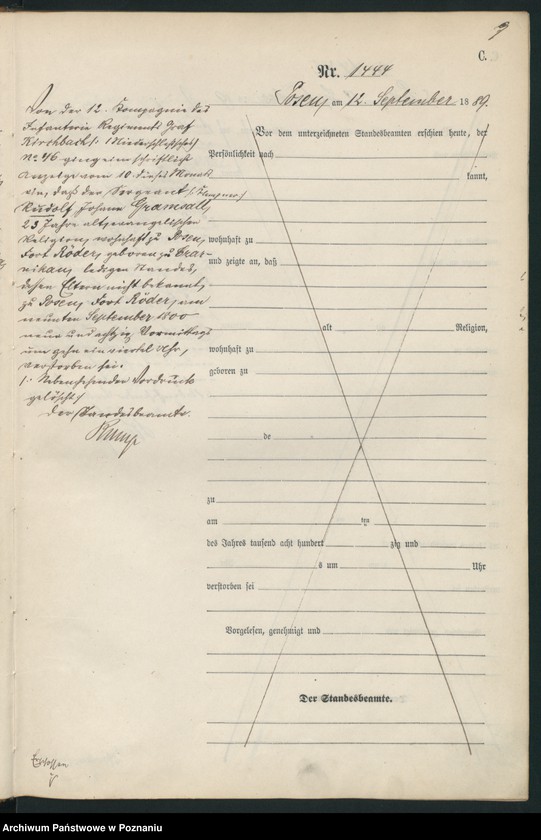 9
C.
Nr. 1444
Posen, am 12. September 1889.
Von der 12. Kompagnie des
Infanterie Regiments Graf
Kirchbach (1. Niederschlesisches)
No. 46 ging ein schriftliche
Anzeige vom 10. dieses Monats
ein, daß der Sergeant
Rudolf Johann Gramsall,
23 Jahre alt, evangelischer
Religion, wohnhaft zu Posen,
Fort Röder, geboren zu
ledigen Standes,
dessen Eltern nicht bekannt,
zu Posen, Fort Röder, am
neunten September 1800
neun und achtzig Vormittags
um zehn ein viertel Uhr,
verstorben sei.
Nebenstehender Vordruck
gelöscht
Der Standesbeamte.
Vor dem unterzeichneten Standesbeamten erschien heute, der
Persönlichkeit nach
kannt,
wohnhaft zu
und zeigte an, daß
alt Religion,
wohnhaft zu
geboren zu
de
zu
am ten
des Jahres tausend acht hundert zig und
s um Uhr
verstorben sei
Vorgelesen, genehmigt und
Der Standesbeamte.
Archiwum Państwowe w Poznaniu